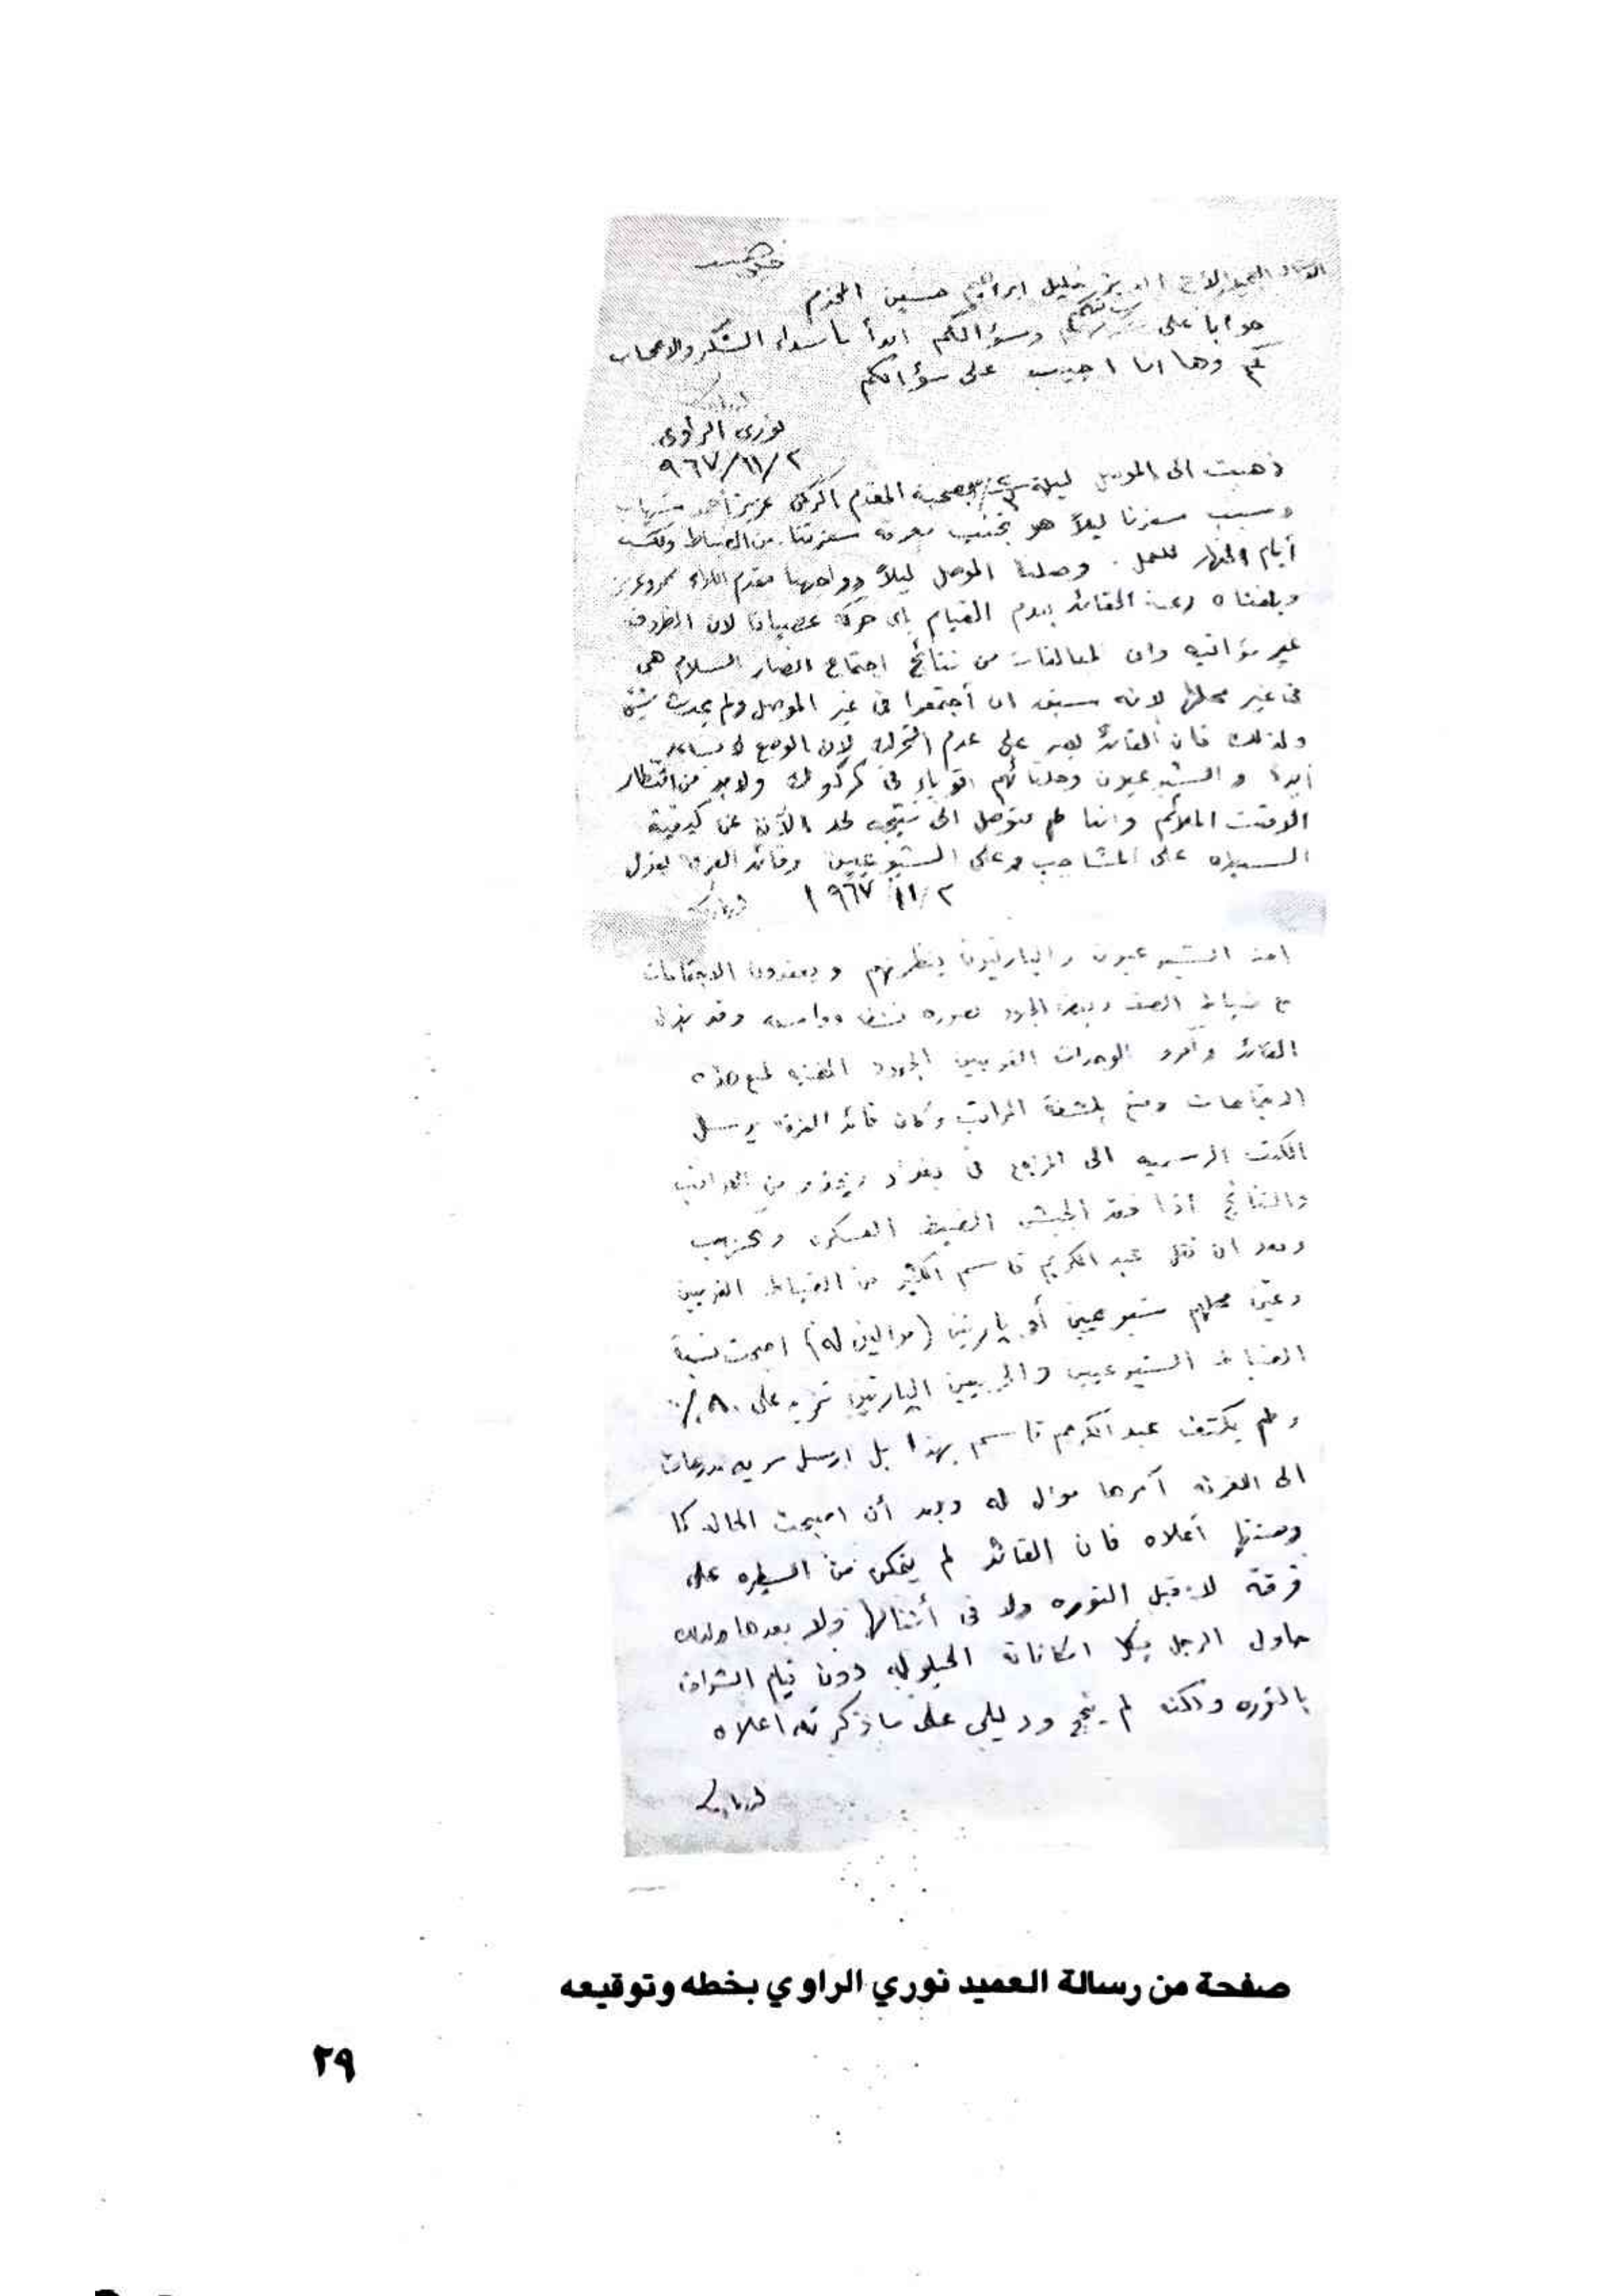 الأخ العزيز خليل ابراهيم حسين المحترم
جوابا على رسالتكم وسؤالكم ابدأ باسداء الشكر والاعجاب
وها انا اجيب على سؤالكم
نوري الراوي
٩٦٧/١١/٢
ذهبت الى الموصل ليلة بصحبة المقدم الركن عزيز أحمد شهاب
وسبب سفرنا ليلاً هو تجنب معرفة سفرتنا من الضباط
أيام النهار للعمل . وصلنا الموصل ليلاً وواجهنا مقدم اللواء محمود عزيز
وبلغناه رغبة القائد بعدم القيام باي حركة عصيان لان الظروف
غير مؤاتيه وان من نتائج اجتماع انصار السلام هي
في غير محلها لانه سبق ان أجتمعوا في غير الموصل ولم يحدث شيئ
ولذلك فان القائد يصر على عدم التحرك لان الوضع لا يساعد
ابدا والشيوعيون وحلفائهم اقوياء في كركوك ولابد من انتظار
الوقت الملائم واننا لم نتوصل الى نتيجه لحد الآن عن كيفية
السيطره على المشاجب وعلى الشيوعيين وقائد الفرقة بعزل
١٩٦٧/١١/٢
اخذ الشيوعيون والبارتيون ينظرنهم ويعقدون الاجتماعات
ضباط الصف وبعض الجنود بصوره وقد
القائد وآمرو الوحدات القوميين الجهود لمنع هذه
الاجتماعات ومنع وكان قائد الفرقة يرسل
الكتب الرسميه الى المراجع في بغداد ويحذر من العواقب
والنتائج اذا فقد الجيش الضبط العسكري
وبعد ان نقل عبد الكريم قاسم الكثير من الضباط القوميين
وعين محلهم شيوعيين أو بارتيين (موالين له) اصبحت نسبة
الضباط الشيوعيين البارتيين تزيد على ٨٠٪
ولم يكتف عبد الكريم قاسم بهذا بل ارسل سريه مدرعات
الى الفرقه آمرها موال له وبعد أن اصبحت الحاله كما
وصفتها أعلاه فان القائد لم يتمكن من السيطره على
فرقة لا قبل الثوره ولا في أثنائها ولا بعدها ولذلك
حاول الرجل بكل امكاناته الحيلوله دون قيام الشواف
بالثوره ولكنه لم ينجح ودليلي على ماذكرته اعلاه
صفحة من رسالة العميد نوري الراوي بخطه وتوقيعه
٢٩